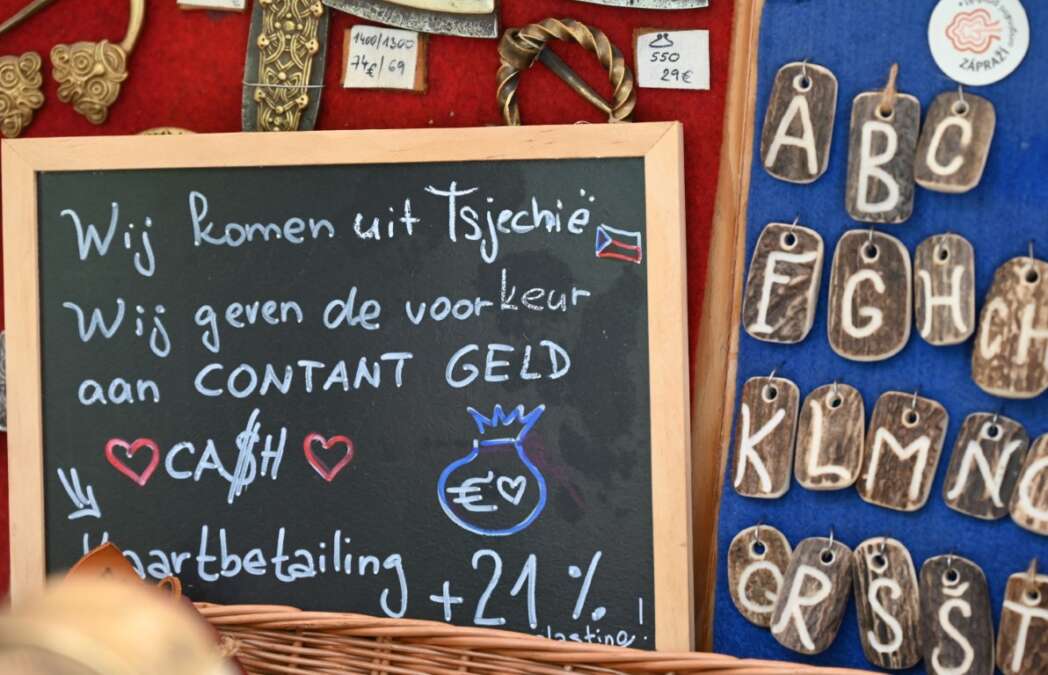 1400/1300
74€/69
550
29€
ZÁPRAŽÍ
Wij komen uit Tsjechië
Wij geven de voorkeur
aan CONTANT GELD
CA$H
€
Kaartbetaling +21%
A B C
F G H CH
K L M N O
Q R S Š T